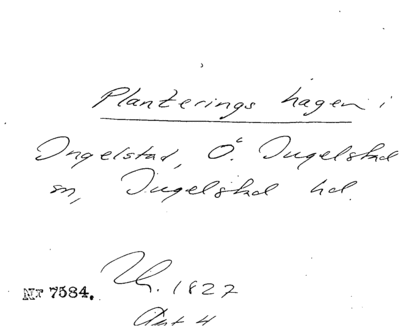 Planterings hagen i
Ingelstad, Ö. Ingelstad
sn, Ingelstad hd.
Nr 7584.
1827